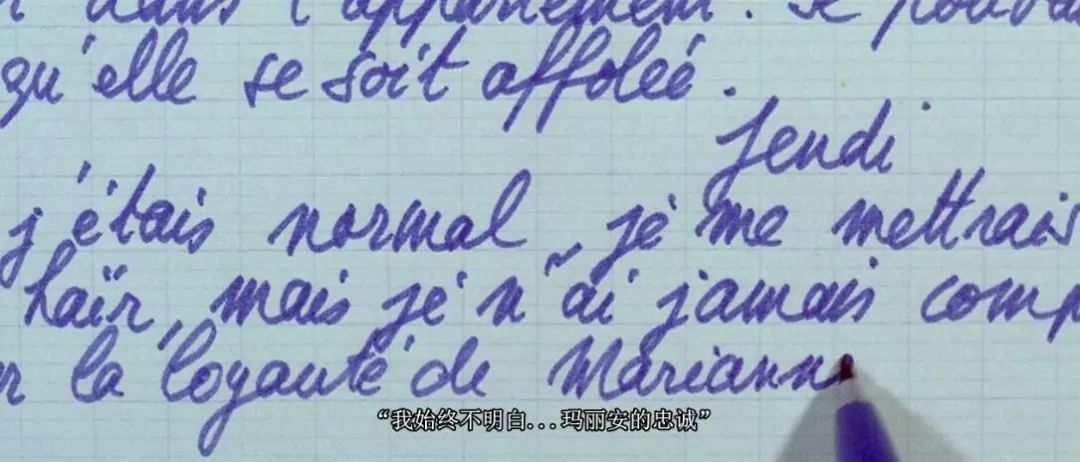 dans l'appartement. Se pouvai
qu'elle se soit affolée.
Jeudi
j'étais normal, je me mettrais
haïr, mais je n'ai jamais comp
r la loyauté de Mariann
“我始终不明白...玛丽安的忠诚”